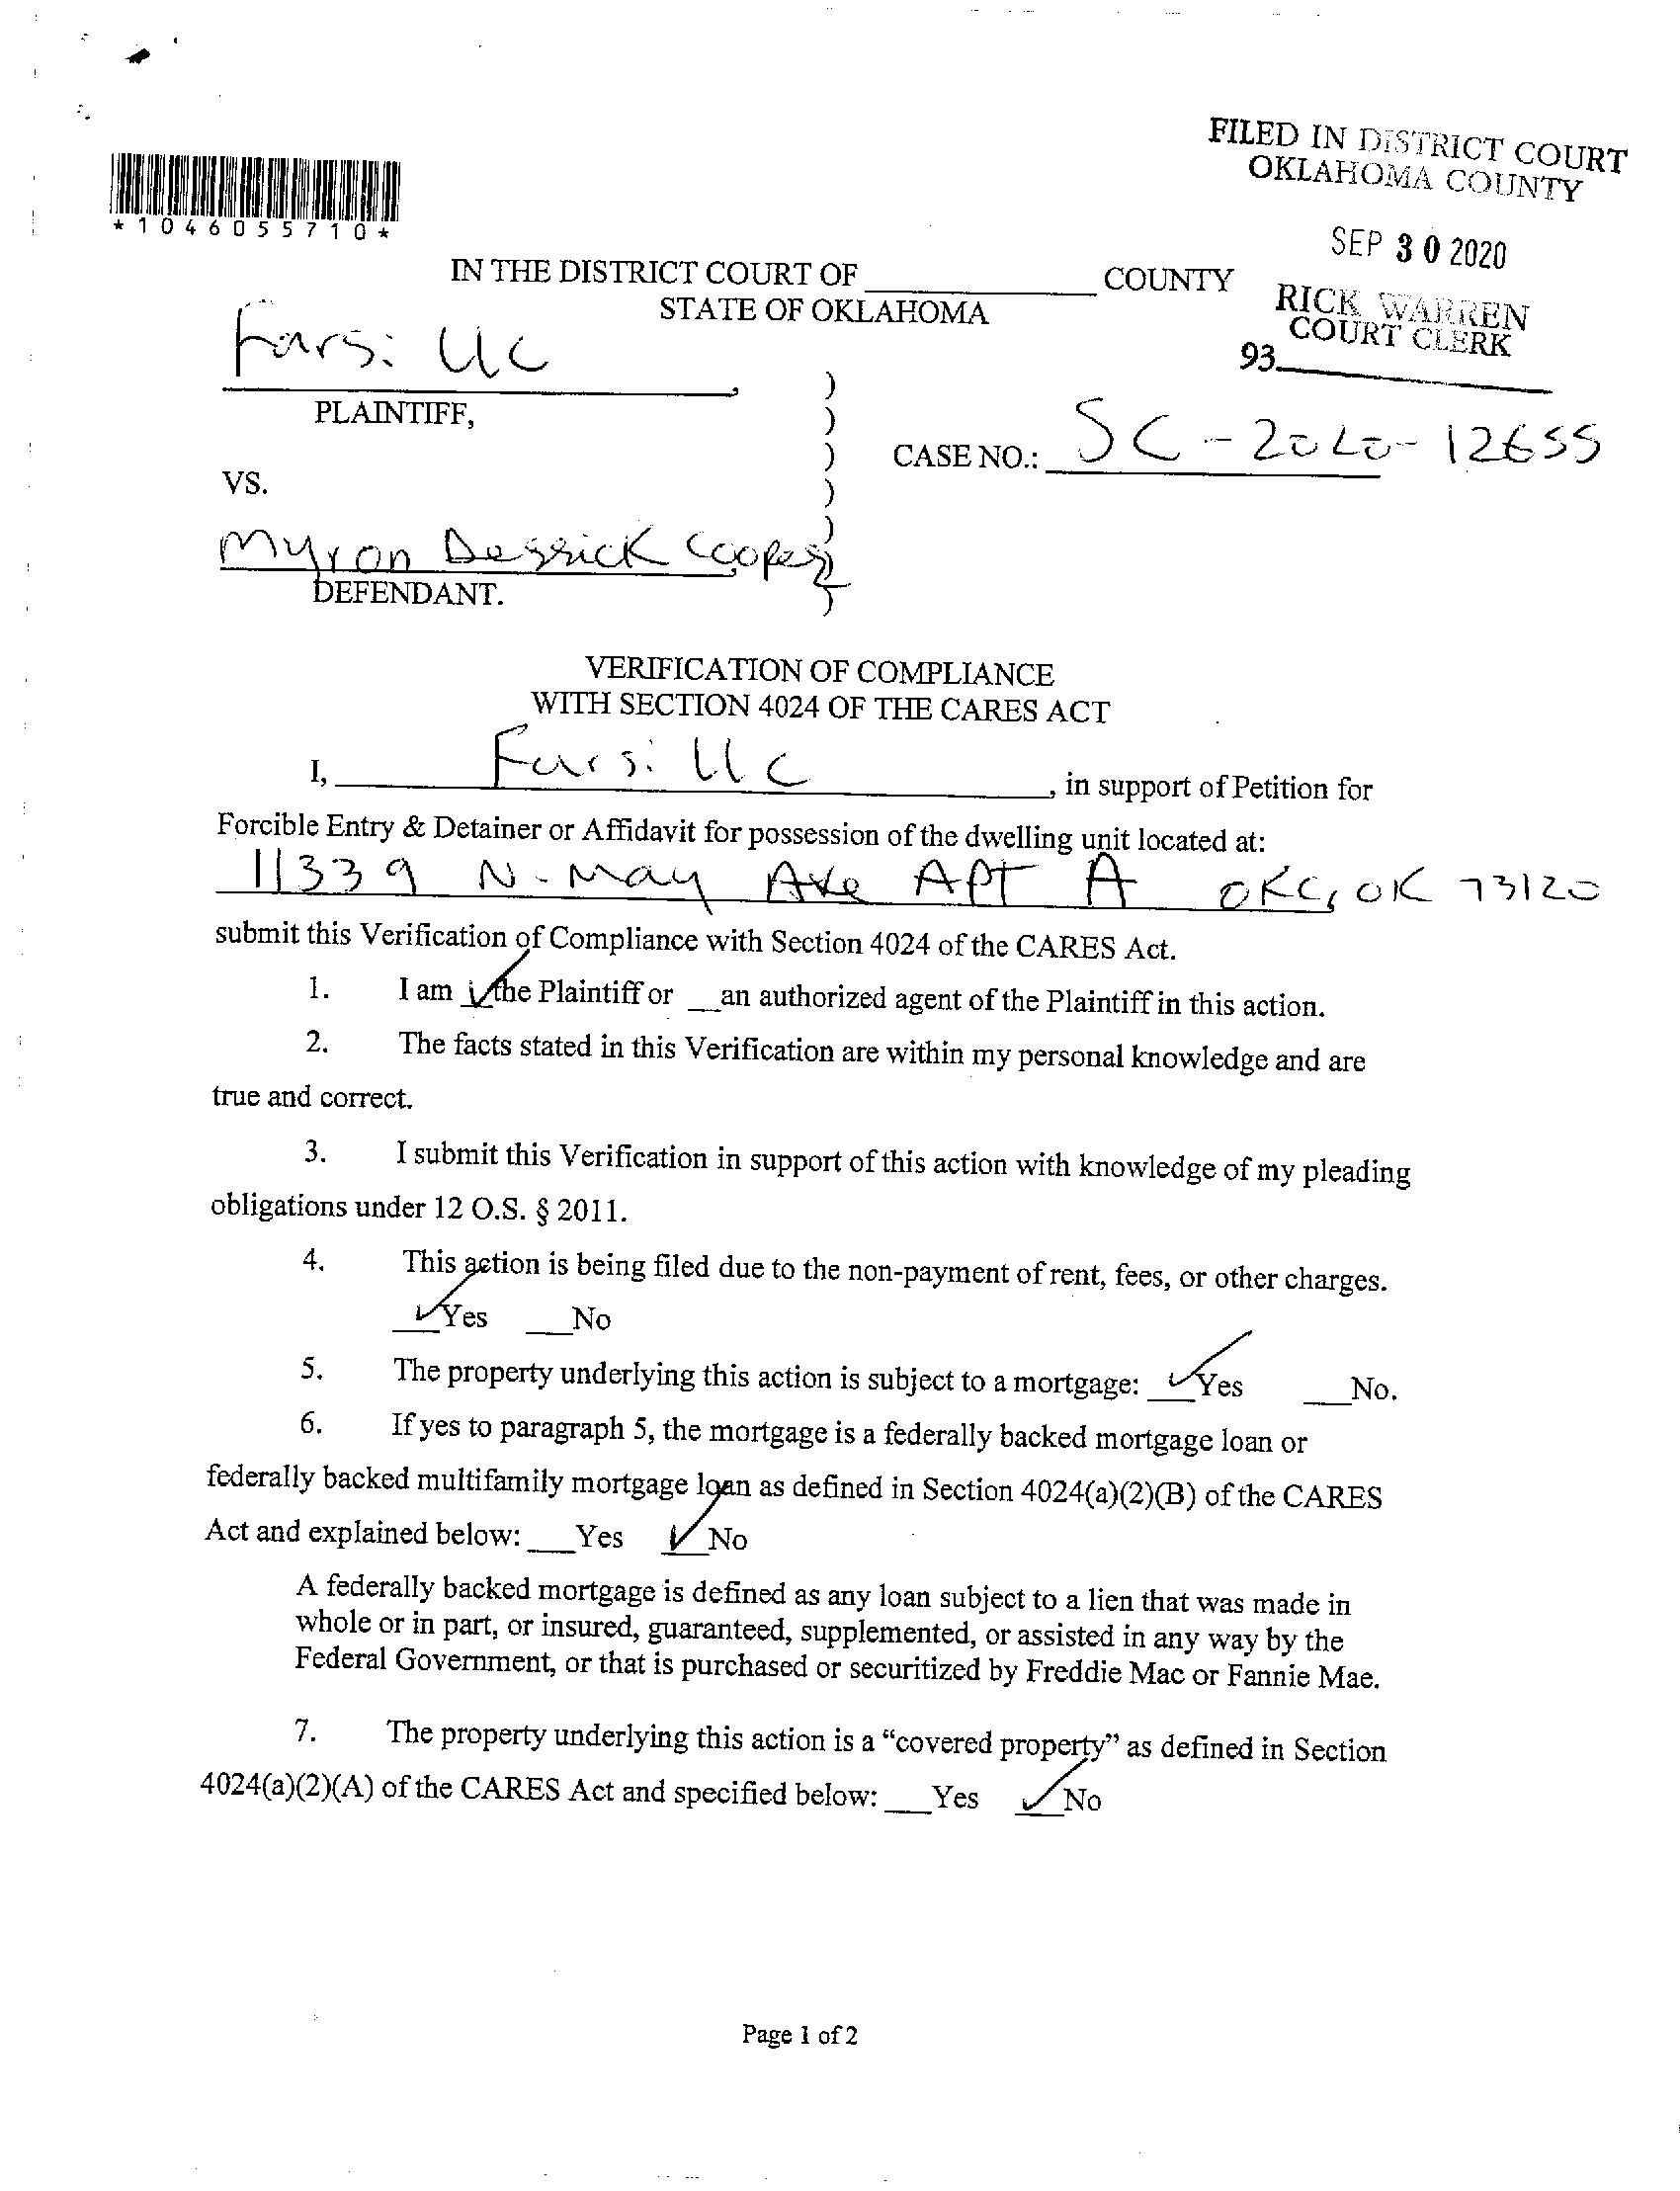 FILED IN DISTRICT COURT
OKLAHOMA COUNTY
*1046055710*
SEP 30 2020
IN THE DISTRICT COURT OF ____________ COUNTY
STATE OF OKLAHOMA
RICK WARREN
COURT CLERK
93____________
Farsi LLC,
PLAINTIFF,
)
)
)
)
)
)
)
CASE NO.: SC-2020-12655
VS.
Myron Derrick Cooper
DEFENDANT.
VERIFICATION OF COMPLIANCE
WITH SECTION 4024 OF THE CARES ACT
I, Farsi LLC, in support of Petition for
Forcible Entry & Detainer or Affidavit for possession of the dwelling unit located at:
11339 N. May Ave APT A OKC, OK 73120
submit this Verification of Compliance with Section 4024 of the CARES Act.
1. I am ✓ the Plaintiff or __an authorized agent of the Plaintiff in this action.
2. The facts stated in this Verification are within my personal knowledge and are
true and correct.
3. I submit this Verification in support of this action with knowledge of my pleading
obligations under 12 O.S. § 2011.
4. This action is being filed due to the non-payment of rent, fees, or other charges.
✓ Yes ___No
5. The property underlying this action is subject to a mortgage: ✓ Yes ___No.
6. If yes to paragraph 5, the mortgage is a federally backed mortgage loan or
federally backed multifamily mortgage loan as defined in Section 4024(a)(2)(B) of the CARES
Act and explained below: ___Yes ✓ No
A federally backed mortgage is defined as any loan subject to a lien that was made in
whole or in part, or insured, guaranteed, supplemented, or assisted in any way by the
Federal Government, or that is purchased or securitized by Freddie Mac or Fannie Mae.
7. The property underlying this action is a “covered property” as defined in Section
4024(a)(2)(A) of the CARES Act and specified below: ___Yes ✓ No
Page 1 of 2